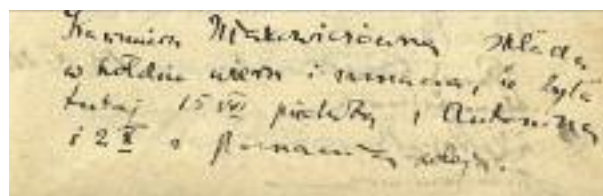 Kazimiera Iłłakowiczówna składa
w hołdzie wiersz i zaznacza, że była
tutaj 15 VII piechotą z Antoniną
i 2 X z Poznania